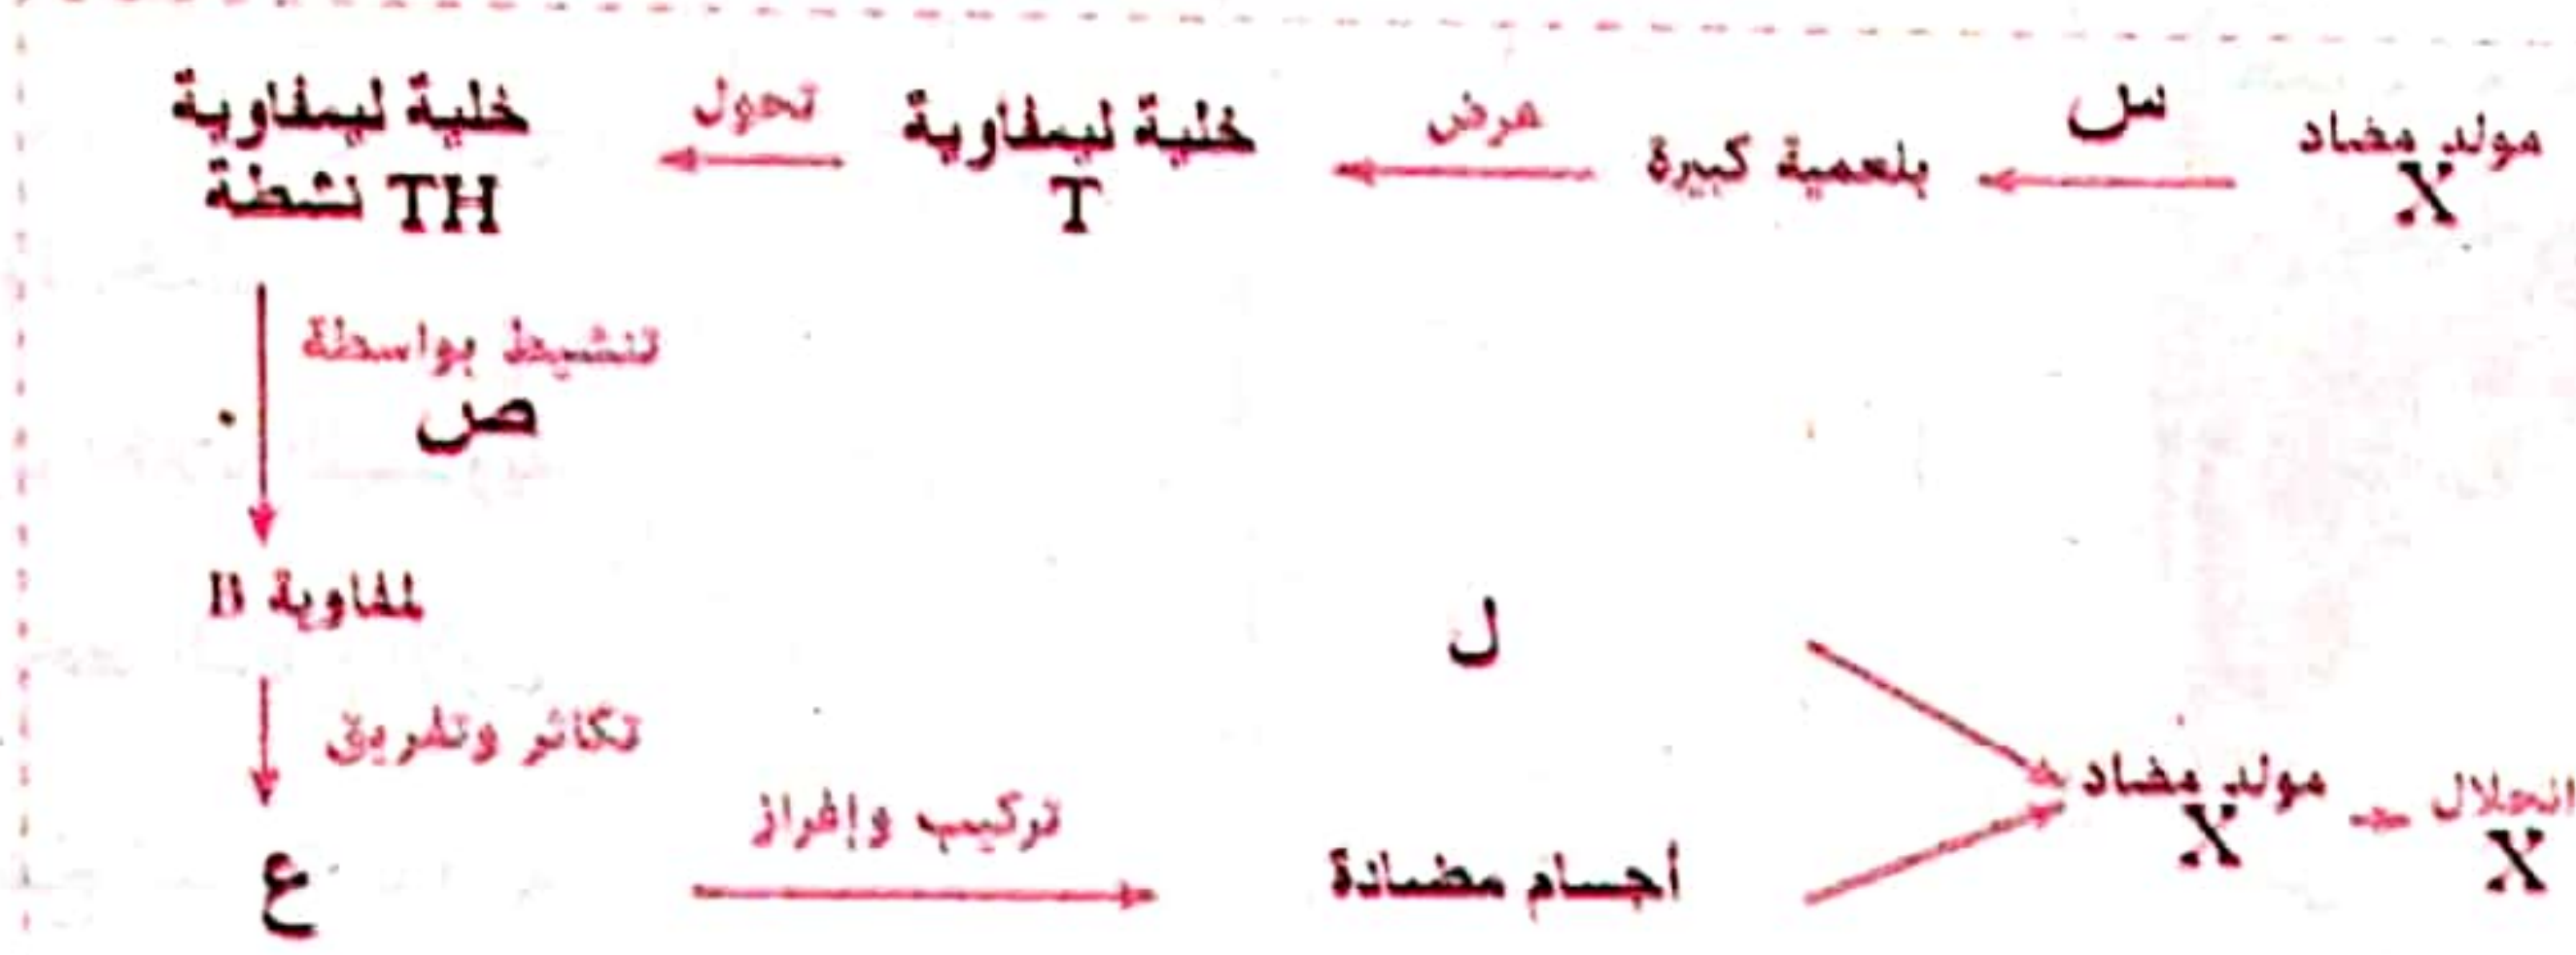 مولد مضاد
X
س
بلعمية كبيرة
عرض
خلية ليمفاوية
T
تحول
خلية ليمفاوية
TH نشطة
تنشيط بواسطة
ص
لمفاوية B
تكاثر وتفريق
ع
تركيب وإفراز
أجسام مضادة
ل
مولد مضاد
X
انحلال
X